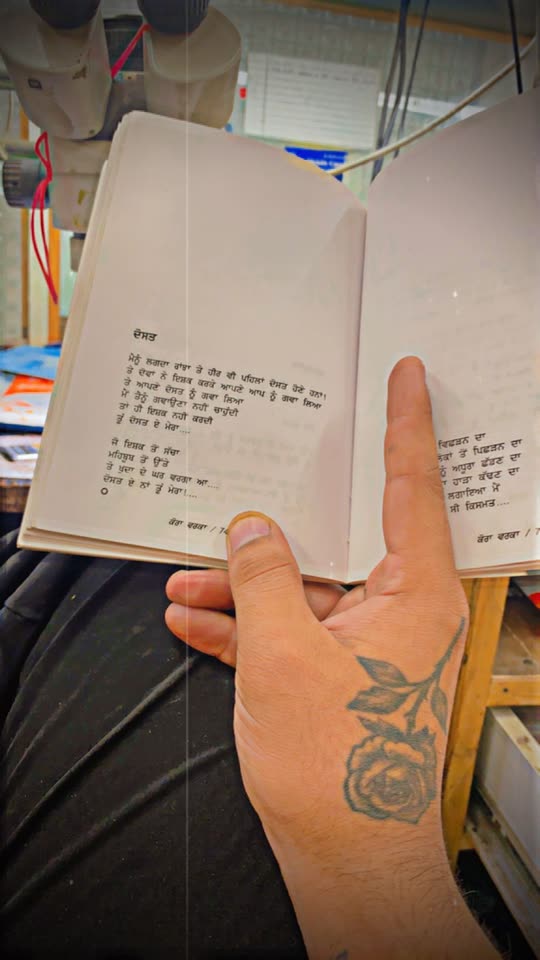 ਦੋਸਤ
ਮੈਨੂੰ ਲਗਦਾ ਰਾਂਝਾ ਤੇ ਹੀਰ ਵੀ ਪਹਿਲਾਂ ਦੋਸਤ ਹੋਣੇ ਹਨਾ!
ਤੇ ਦੋਵਾਂ ਨੇ ਇਸ਼ਕ ਕਰਕੇ ਆਪਣੇ ਆਪ ਨੂੰ ਗਵਾ ਲਿਆ
ਤੇ ਆਪਣੇ ਦੋਸਤ ਨੂੰ ਗਵਾ ਲਿਆ
ਮੈਂ ਤੈਨੂੰ ਗਵਾਉਣਾ ਨਹੀਂ ਚਾਹੁੰਦੀ
ਤਾਂ ਹੀ ਇਸ਼ਕ ਨਹੀਂ ਕਰਦੀ
ਤੂੰ ਦੋਸਤ ਏ ਮੇਰਾ....
ਜੋ ਇਸ਼ਕ ਤੋਂ ਸੱਚਾ
ਮਹਿਬੂਬ ਤੋਂ ਉੱਤੇ
ਤੇ ਖ਼ੁਦਾ ਦੇ ਘਰ ਵਰਗਾ ਆ....
ਦੋਸਤ ਏ ਨਾਂ ਤੂੰ ਮੇਰਾ!....
ਕੋਰਾ ਵਰਕਾ / 74
ਵਿਛੜਨ ਦਾ
ਤੋਂ ਪਿਛੜਨ ਦਾ
ਨੂੰ ਅਧੂਰਾ ਛੱਡਣ ਦਾ
ਹਾੜਾ ਕੱਢਣ ਦਾ
ਲਗਾਇਆ ਮੈਂ
ਸੀ ਕਿਸਮਤ....
ਕੋਰਾ ਵਰਕਾ / 7